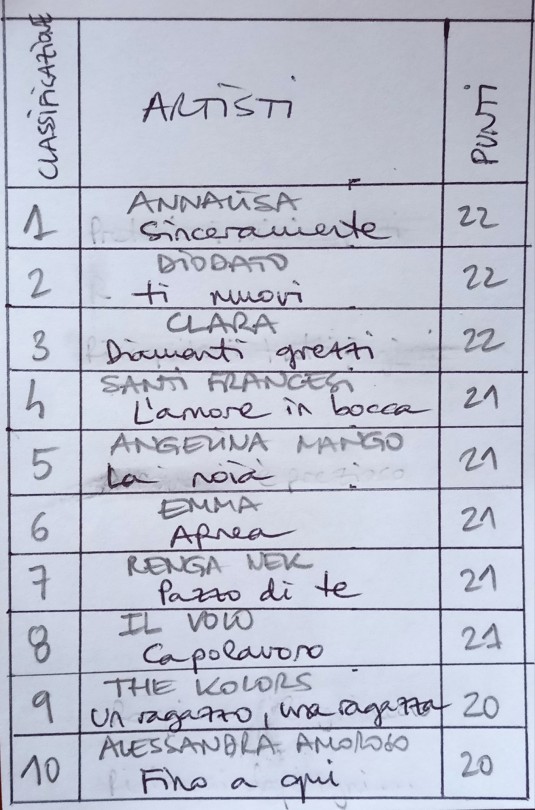 CLASSIFICAZIONE
ARTISTI
PUNTI
1
ANNALISA
22
Sinceramente
2
DIODATO
22
ti muovi
3
CLARA
22
Diamanti grezzi
4
SANTI FRANCESI
21
L'amore in bocca
5
ANGELINA MANGO
21
La noia
6
EMMA
21
Apnea
7
RENGA NEK
21
Pazzo di te
8
IL VOLO
21
Capolavoro
9
THE KOLORS
20
Un ragazzo, una ragazza
10
ALESSANDRA AMOROSO
20
Fino a qui